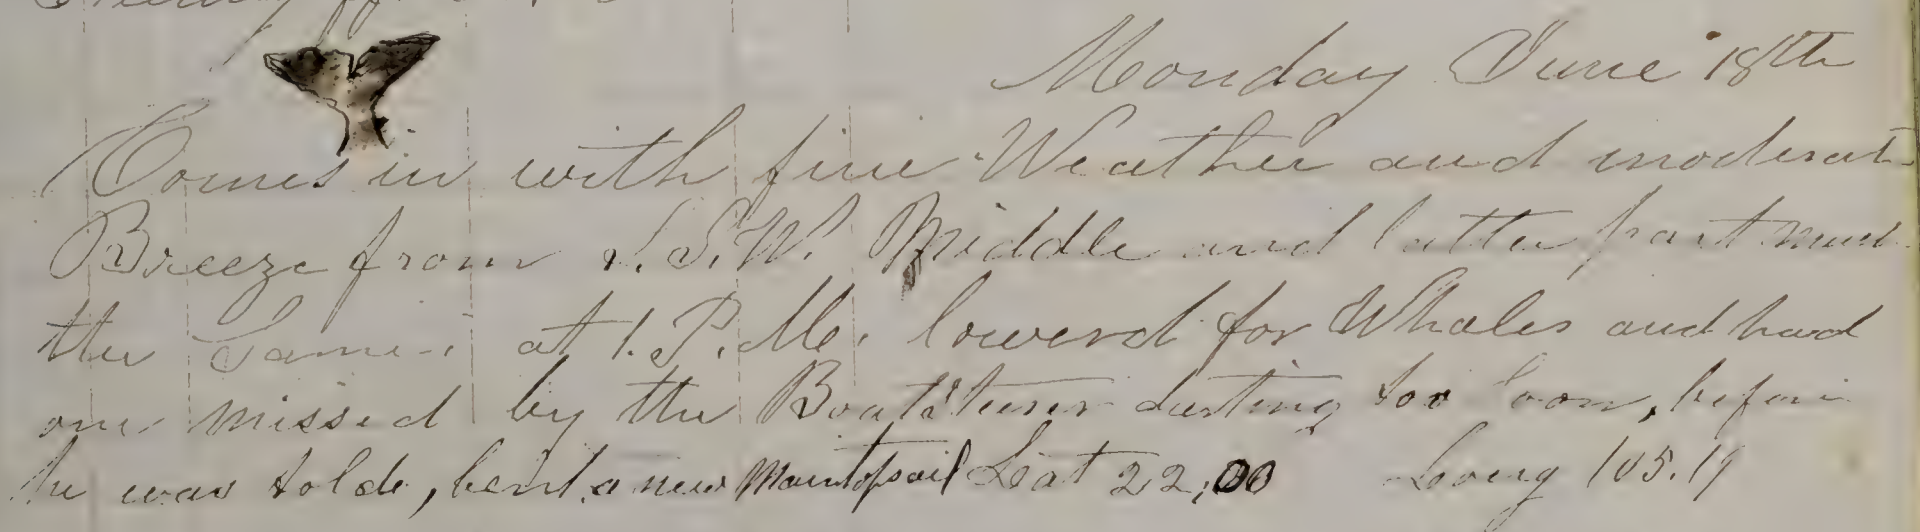 Monday June 18th
Comes in with fine Weather and moderate
Breeze from S.S.W. Middle and latter part much
the Same. at 1. P.M. lowerd for Whales and had
one missed by the Boatsteerer darting too soon, before
he was tolde, bent a new Maintopsail Lat 22,00 Long 105.19